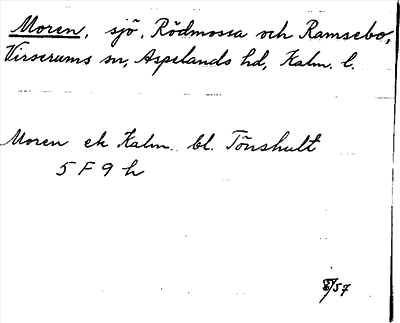 Moren, sjö, Rödmossa och Ramsebo,
Virserums sn, Aspelands hd, Kalm. l.
Moren ek Kalm. bl. Tönshult
5 F 9 h
8/57